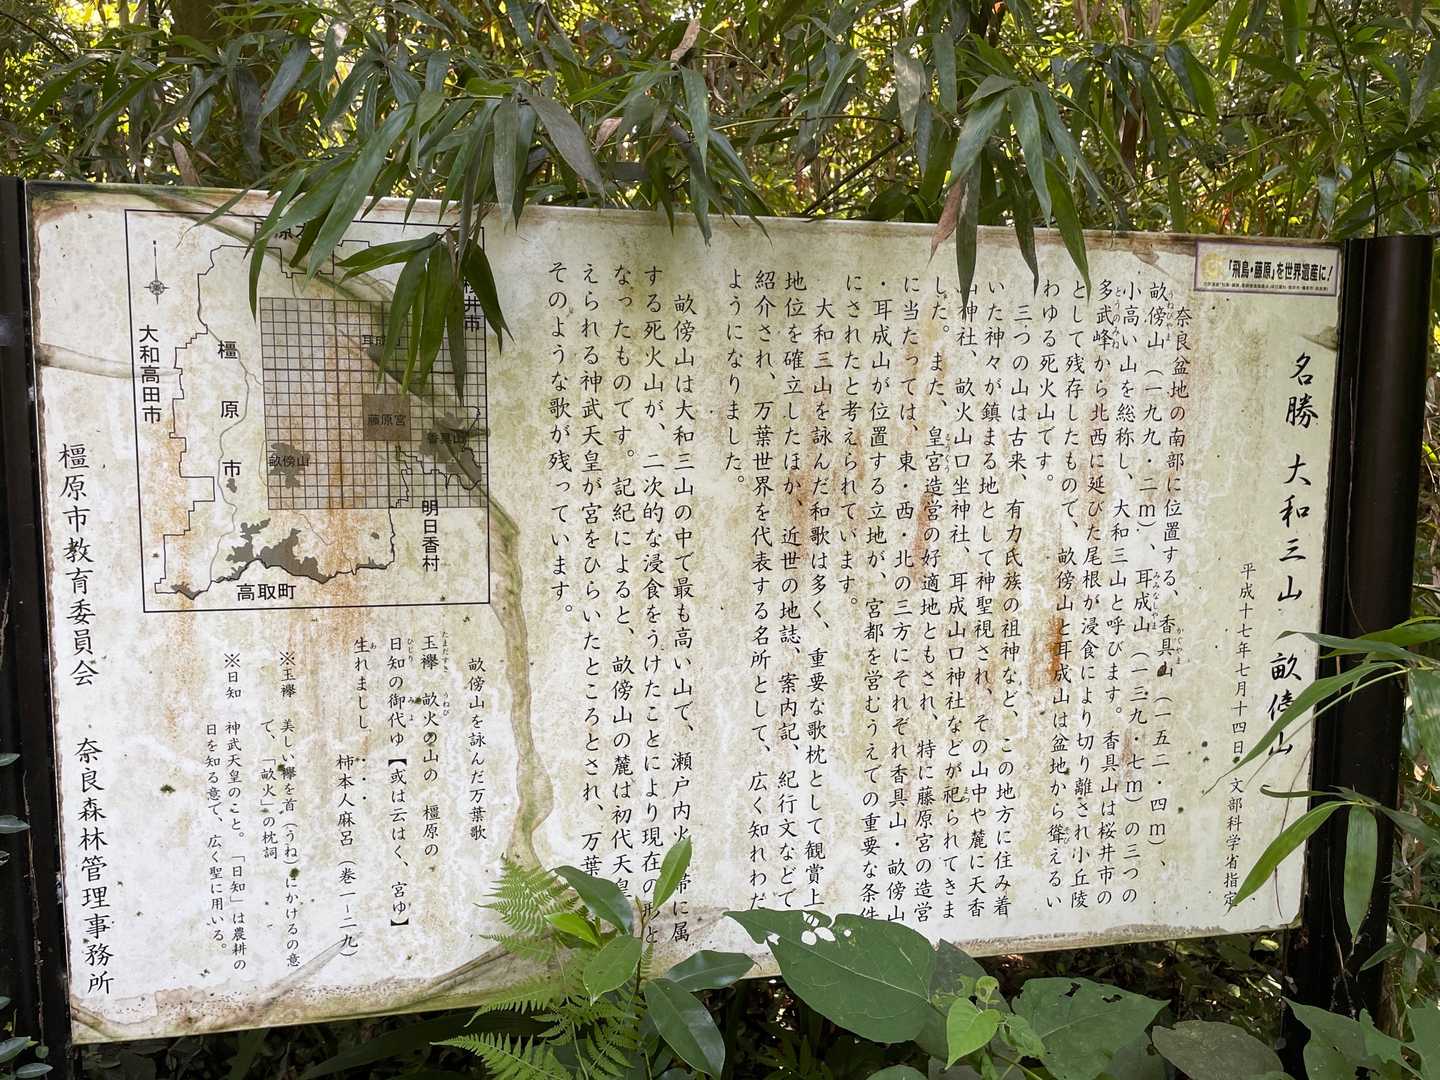 「飛鳥・藤原」を世界遺産に!
名勝 大和三山 畝傍山
平成十七年七月十四日 文部科学省指定
奈良盆地の南部に位置する、香具山（一五二・四ｍ）、
畝傍山（一九九・二ｍ）、耳成山（一三九・七ｍ）の三つの
小高い山を総称し、大和三山と呼びます。香具山は桜井市の
多武峰から北西に延びた尾根が浸食により切り離され小丘陵
として残存したもので、畝傍山と耳成山は盆地から聳えるい
わゆる死火山です。
三つの山は古来、有力氏族の祖神など、この地方に住み着
いた神々が鎮まる地として神聖視され、その山中や麓に天香
山神社、畝火山口坐神社、耳成山口神社などが祀られてきま
した。また、皇宮造営の好適地ともされ、特に藤原宮の造営
に当たっては、東・西・北の三方にそれぞれ香具山・畝傍山
・耳成山が位置する立地が、宮都を営むうえでの重要な条件
にされたと考えられています。
大和三山を詠んだ和歌は多く、重要な歌枕として観賞上
地位を確立したほか、近世の地誌、案内記、紀行文などで
紹介され、万葉世界を代表する名所として、広く知れわた
ようになりました。
畝傍山は大和三山の中で最も高い山で、瀬戸内火 帯に属
する死火山が、二次的な浸食をうけたことにより現在の形と
なったものです。記紀によると、畝傍山の麓は初代天皇
えられる神武天皇が宮をひらいたところとされ、万葉
そのような歌が残っています。
畝傍山を詠んだ万葉歌
玉襷 畝火の山の 橿原の
日知の御代ゆ【或は云はく、宮ゆ】
生れましし・・・
柿本人麻呂（巻一－二九）
※玉襷 美しい襷を首（うね）にかけるの意
で、「畝火」の枕詞
※日知 神武天皇のこと。「日知」は農耕の
日を知る意で、広く聖に用いる。
橿原市教育委員会 奈良森林管理事務所
大和高田市
橿原市
耳成山
藤原宮
香具山
畝傍山
桜井市
明日香村
高取町